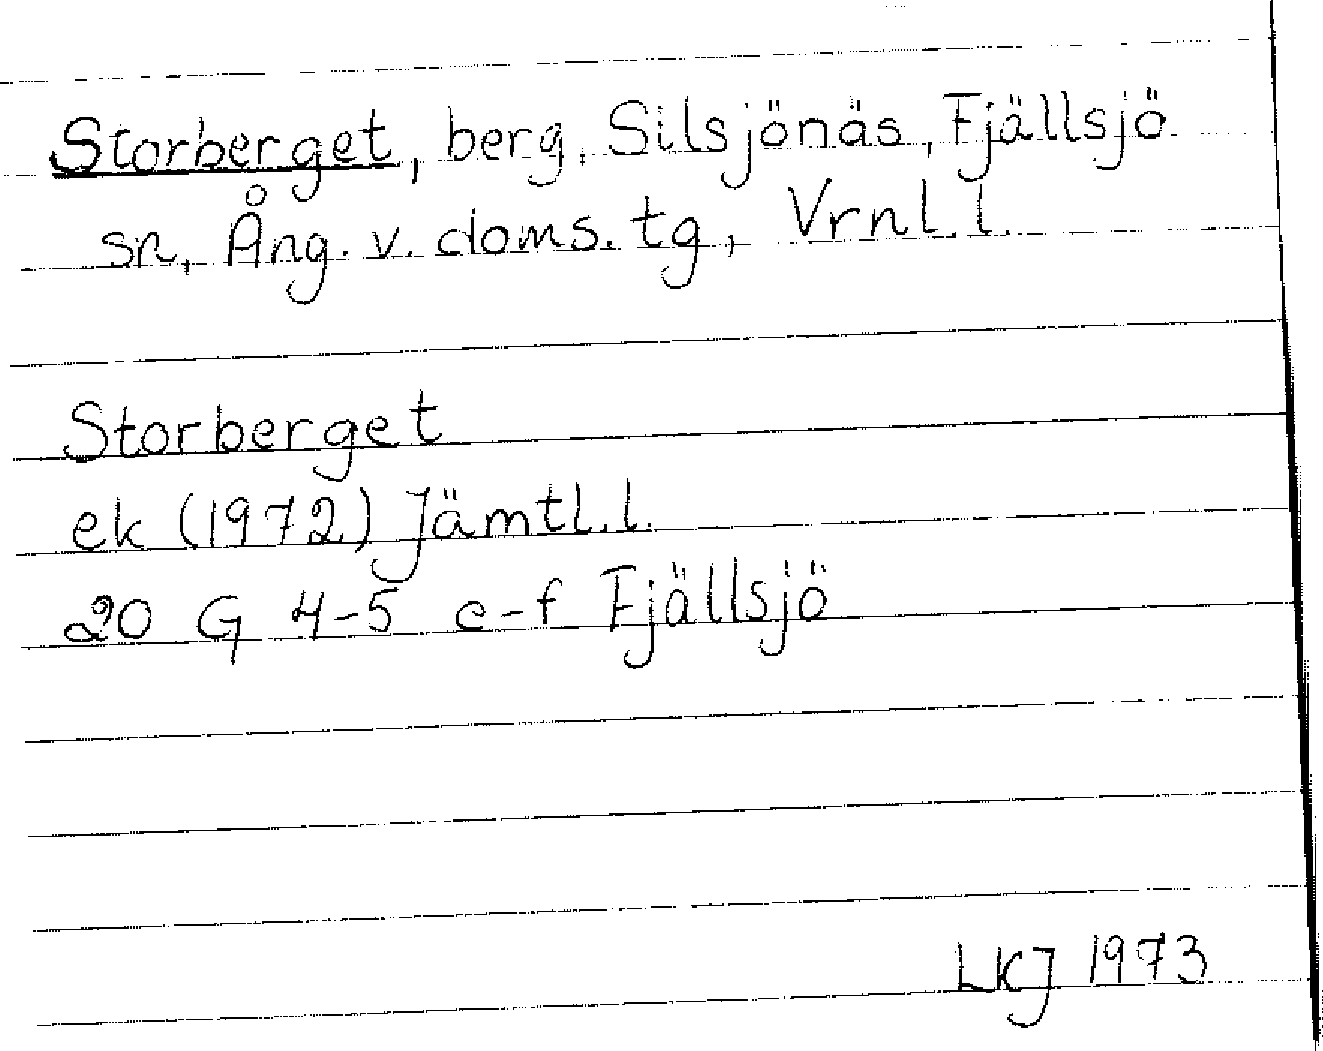 Storberget, berg, Silsjönäs, Fjällsjö
sn, Ång. v. doms. tg, Vrnl. l.
Storberget
ek (1972) Jämtl. l.
20 G 4-5 e-f Fjällsjö
LKJ 1973